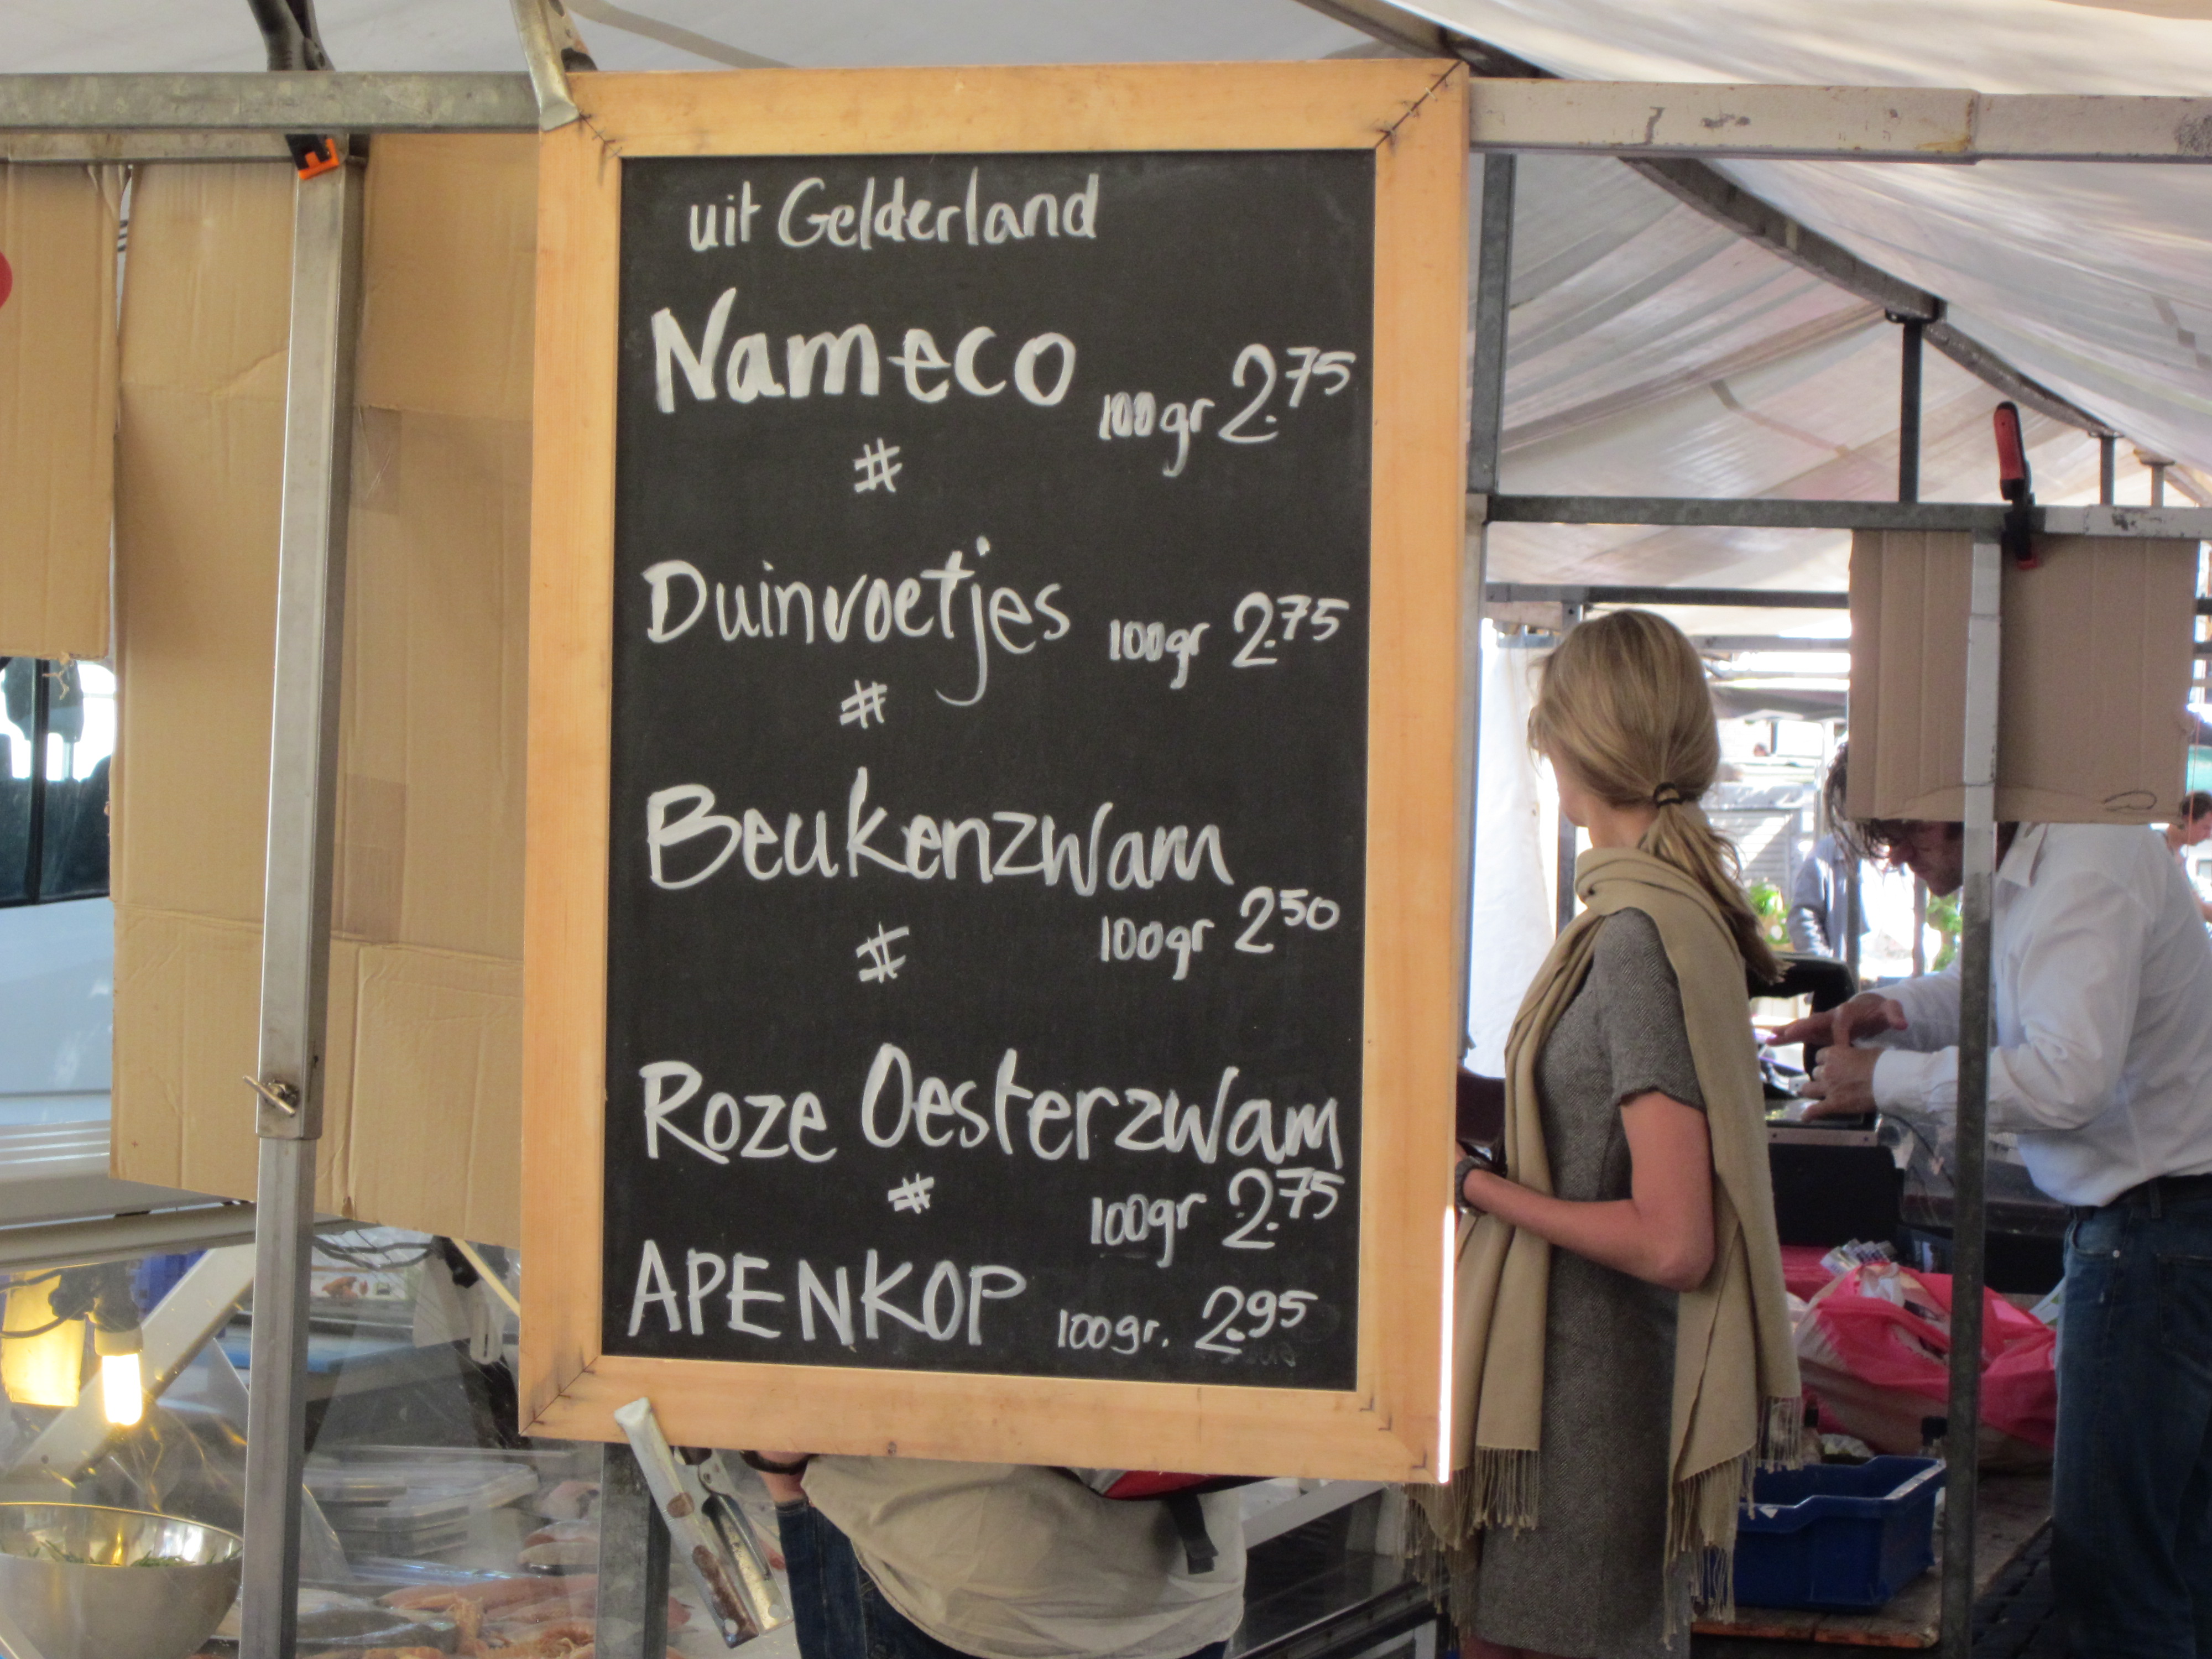 uit Gelderland
Nameco 100gr 2.75
#
Duinvoetjes 100gr 2.75
#
Beukenzwam
100gr 2 50
#
Roze Oesterzwam
# 100gr 2.75
APENKOP 100gr. 2.95